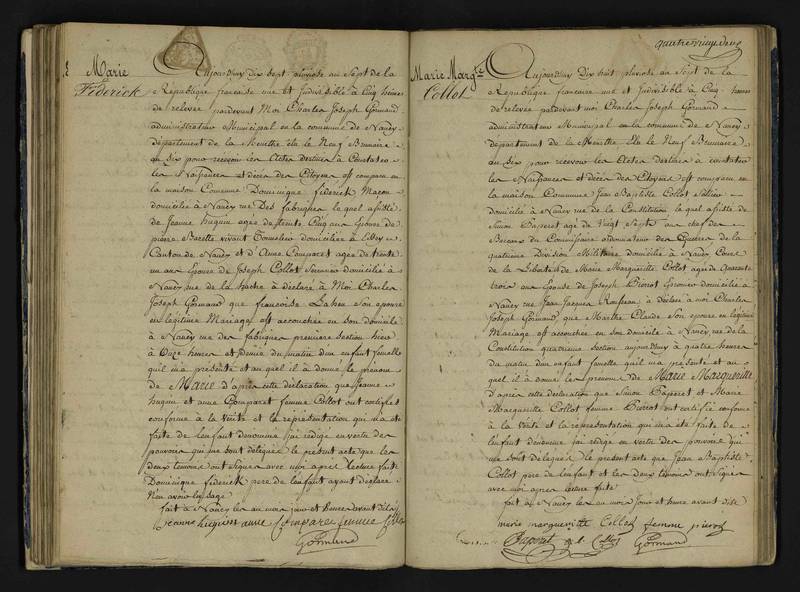 Marie
Féderick
Aujourdhuy dix sept pluviose an Sept de la
République francaise une et Indivisible à Cinq heures
de relevée pardevant Moi Charles Joseph Gormand
administrateur Municipal en la commune de Nancy
département de la Meurthe élu le Neuf Brumaire
an six pour recevoir les Actes destinés à Constater
les Naissances et décès des Citoyens est comparu en
la maison Commune Dominique féderick Macon
domicilié à Nancy rue Des fabriques le quel assisté
de Jeanne huguin agée de trente Cinq ans Epouse de
pierre Bacelle vivant Tonnelier domiciliée à Essey
Canton de Nancy et d'Anne Comparet agée de trente
un ans Epouse de Joseph Collot Serrurier domiciliée à
Nancy rue de la hache à déclaré à Moi Charles
Joseph Gormand que francoise Son epouse
en légitime Mariage est accouchée en son domicile
à Nancy rue des fabriques premiere section hier
à Onze heures et demie du matin d'un enfant femelle
qu'il m'a présenté et au quel il à donné le prénom
de Marie d'après cette déclaration que Jeanne
huguin et anne Comparet femme Collot ont certifiés
conforme à la vérité et la représentation qui m'a été
faite de l'enfant dénommé j'ai rédigé en vertu des
pouvoirs qui me sont délégués le présent acte que les
deux temoins ont Signés avec moi après Lecture faite
Dominique féderick pere de l'enfant ayant déclaré
N'en avoir l'usage
fait à Nancy les an mois jour et heures avant dits
Jeanne huguin anne Comparet femme Collot
Gormand
quatre vingt deux
Marie Margte
Collot
Aujourdhuy Dix huit pluviose an Sept de la
République francaise une et Indivisible à Cinq heures
de relevée pardevant moi Charles Joseph Gormand
administrateur Municipal en la commune de Nancy
département de la Meurthe élu le Neuf Brumaire
an Six pour recevoir les Actes destinés à constater
les Naissances et décès des Citoyens est comparu en
la maison Commune Jean Baptiste Collot Sellier
domicilié à Nancy rue de la Constitution le quel assisté de
Simon Paperet agé de Vingt Sept ans chef des
Bureaux du Commissaire ordonnateur des Guerres de la
quatrieme Division Militaire domicilié à Nancy Cours
de la Liberté et de Marie Marguerite Collot agée de Quarante
trois ans Epouse de Joseph Pierrot domiciliée à
Nancy rue Jean Jacques Rousseau à déclaré à moi Charles
Joseph Gormand que Marthe Claude Son epouse en légitime
Mariage est accouchée en son domicile à Nancy rue de la
Constitution quatrieme section aujourdhuy à quatre heures
du matin d'un enfant femelle qu'il m'a présenté et au
quel il à donné les prenoms de Marie Marguerite
d'après cette déclaration que Simon Paperet et Marie
Marguerite Collot femme Pierrot ont certifié conforme
à la vérité et la représentation qui m'a été faite de
l'enfant dénommé j'ai rédigé en vertu des pouvoirs qui
me sont délégués le présent acte que Jean Baptiste
Collot pere de l'enfant et les deux temoins ont Signés
avec moi après lecture faite
fait à Nancy les an mois Jour et heure avant dits
marie marguerite Collot femme pierrot
Paperet J B Collot Gormand